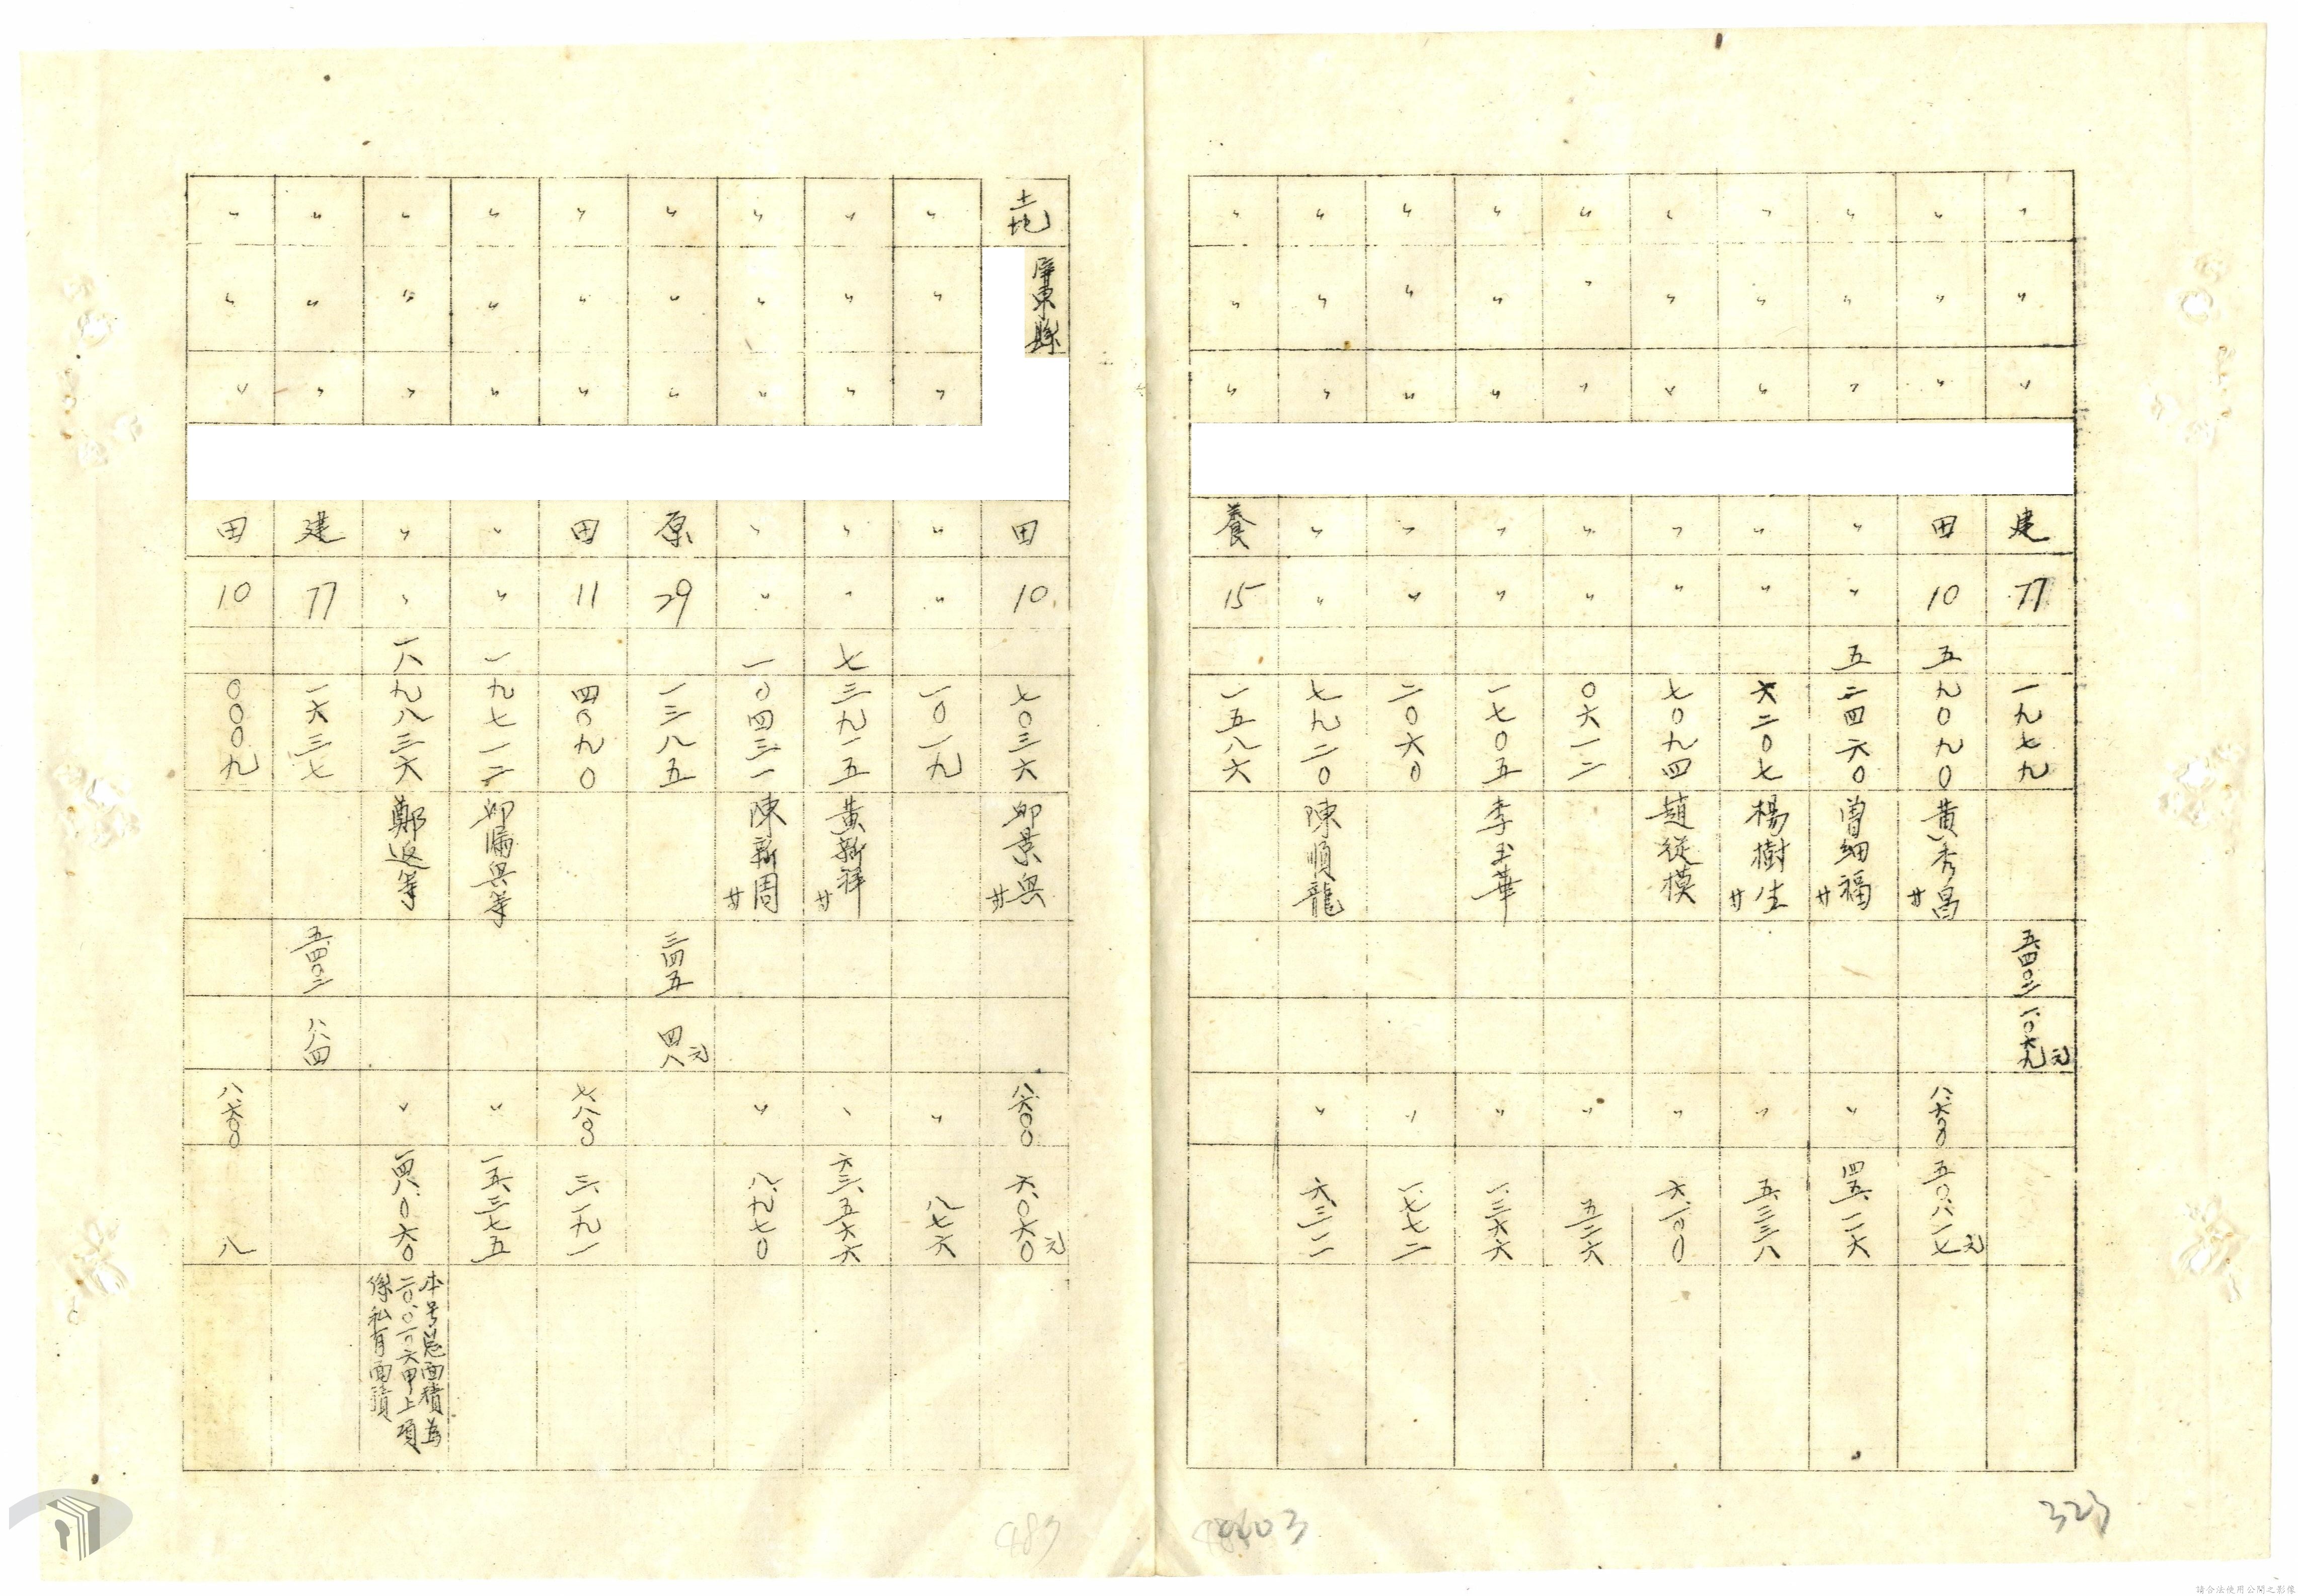 〃 〃 〃 建 77 一九七九 五.四〇二 一.〇六九元
〃 〃 〃 田 10 五 九〇九〇 黄秀昌廿 八.六〇〇 五〇.八一七元
〃 〃 〃 〃 〃 五 二四六〇 曽細福廿 〃 四五.一一六
〃 〃 〃 〃 〃 六二〇七 楊樹生廿 〃 五.三三八
〃 〃 〃 〃 〃 七〇九四 趙從模 〃 六.一〇〇
〃 〃 〃 〃 〃 〇六一二 〃 五二六
〃 〃 〃 〃 〃 一七〇五 李玉華 〃 一.三六六
〃 〃 〃 〃 〃 二〇六〇 〃 一.七七二
〃 〃 〃 〃 〃 七九二〇 陳順龍 〃 六.三一一
〃 〃 〃 養 15 一五八六
土地 屏東縣 田 10 七〇三六 邱景興廿 八.六〇〇 六.〇六〇元
〃 〃 〃 〃 〃 一〇一九 〃 八七六
〃 〃 〃 〃 〃 七 三九一五 黄新祥廿 〃 六三.五六六
〃 〃 〃 〃 〃 一 〇四三一 陳新周廿 〃 八.九七〇
〃 〃 〃 原 29 一三八五 三四五 四八元
〃 〃 〃 田 11 四〇九〇 七.八〇〇 三.一九一
〃 〃 〃 〃 〃 一 九七一二 邱滿興等 〃 一五.三七五
〃 〃 〃 〃 〃 一八 九八三六 鄭返等 〃 一四八.〇六〇
本号总面積為
二〇.〇一〇六甲上項
係私有面積
〃 〃 〃 建 77 一六三七 五.四〇二 八八四
〃 〃 〃 田 10 〇〇〇九 八.六〇〇 八
323
483
請合法使用公開之影像